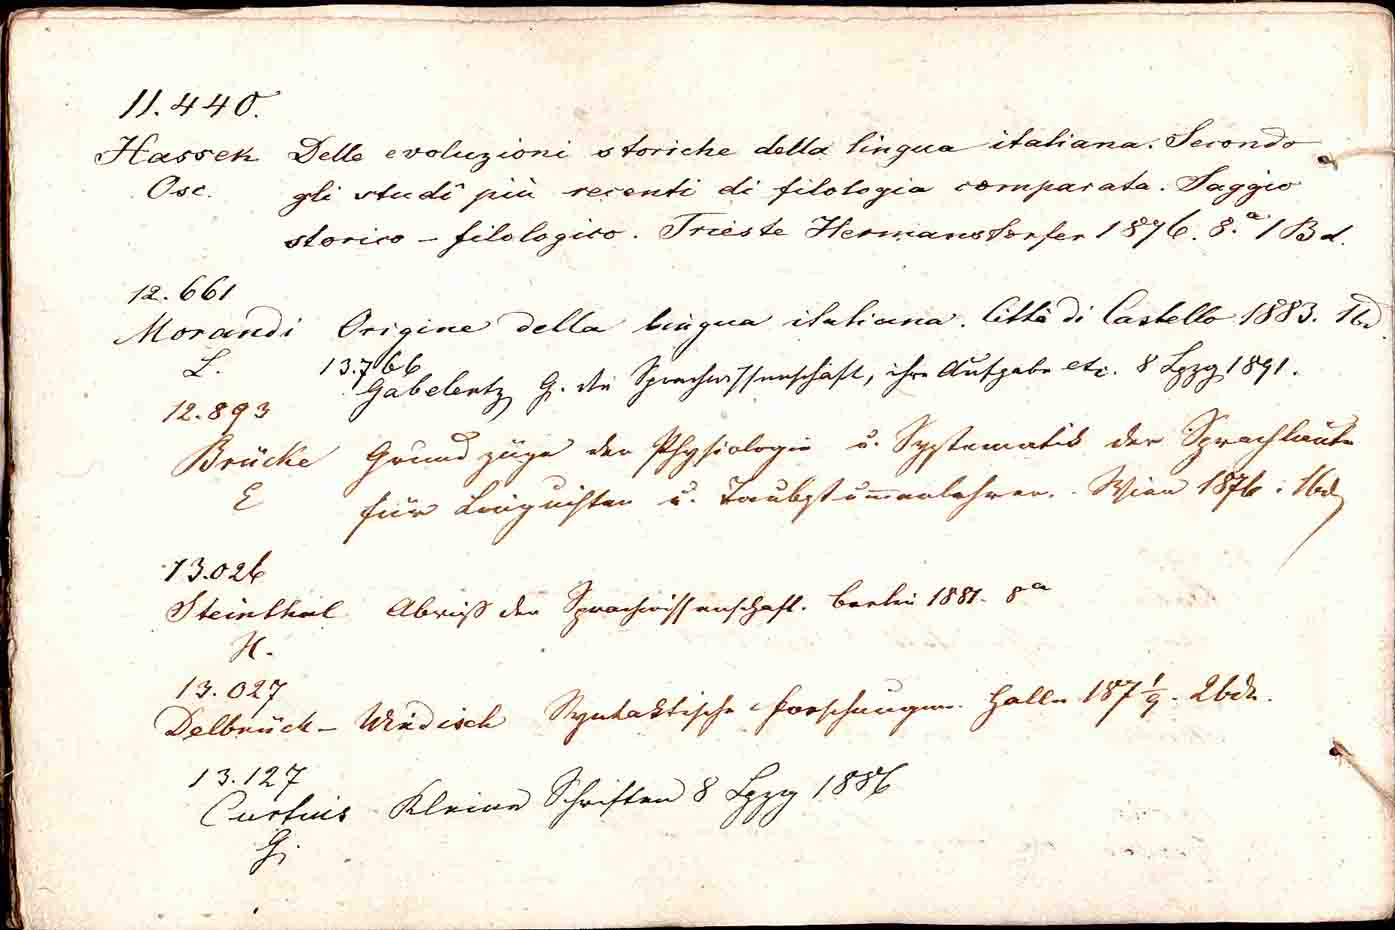 11.440.
Hassek Delle evoluzioni storiche della lingua italiana. Secondo
Osc. gli studî più recenti di filologia comparata. Saggio
storico-filologico. Trieste Hermanstorfer 1876. 8.° 1 Bd.
12.661
Morandi Origine della lingua italiana. Città di Castello 1883. 1 Bd
L.
13.766
Gabelentz G. die Sprachwissenschaft, ihre Aufgabe etc. 8 Lpzg 1891.
12.893
Brücke Grundzüge der Physiologie u. Systematik der Sprachlaute
E für Linguisten u. Taubstum̅enlehrer. Wien 1876. 1 Bd
13.026
Steinthal Abriß der Sprachwissenschaft. Berlin 1881. 8°
H.
13.027
Delbrück - Windisch Syntaktische Forschungen. Halle 187 1/9. 2 bde.
13.127
Curtius Kleine Schriften 8 Lpzg 1886
G.